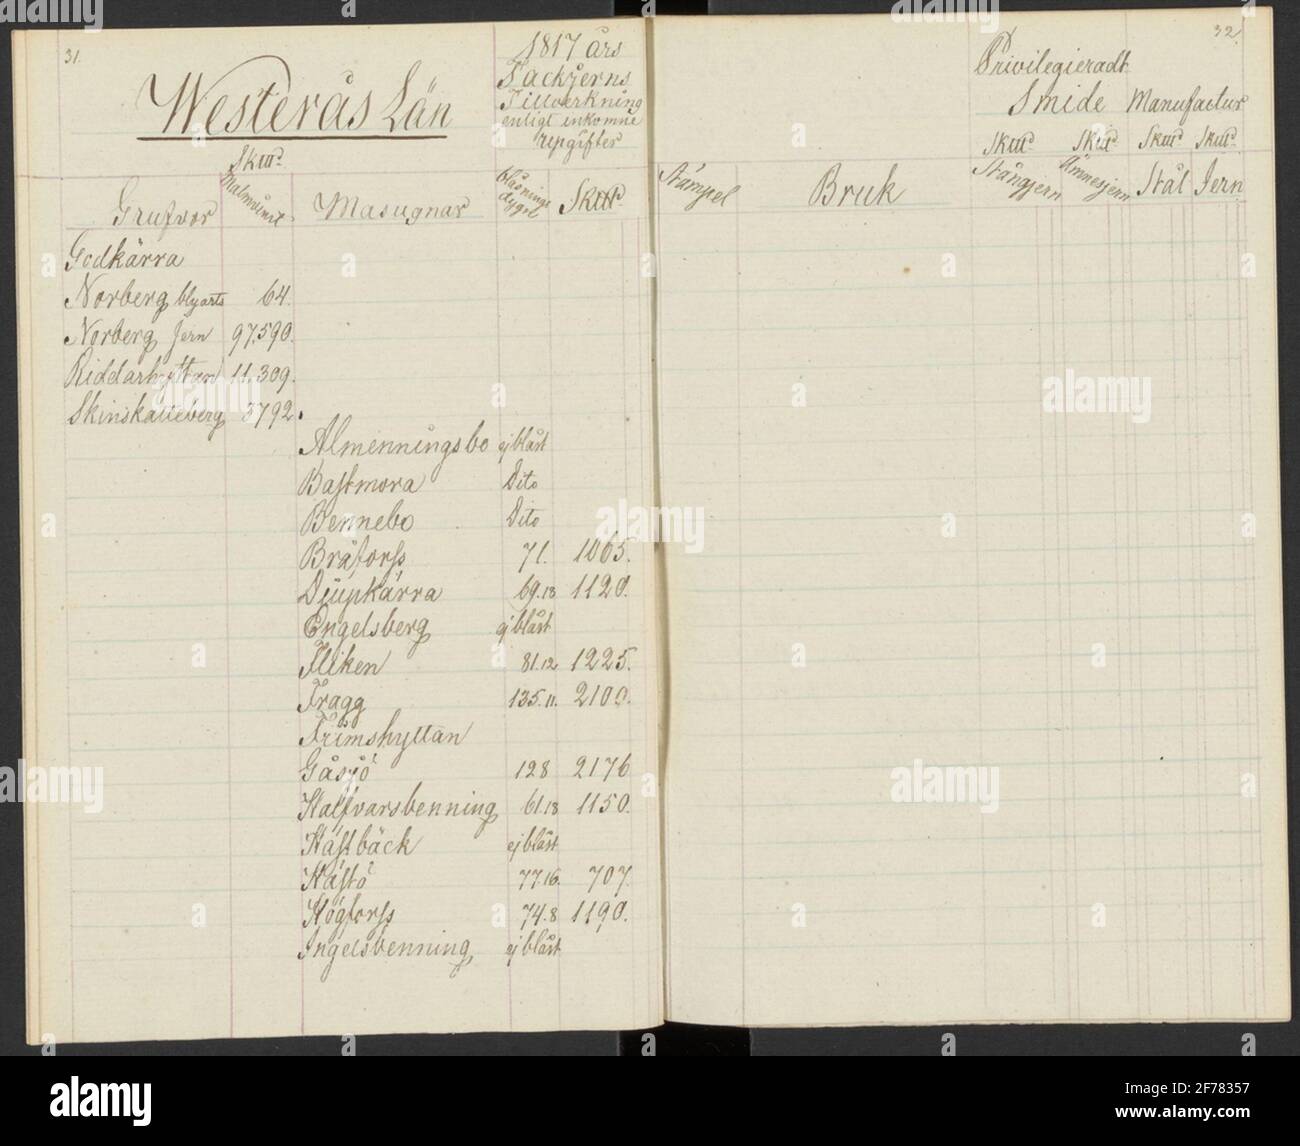 31.
Westerås Län
1817 års
Tackjerns
Tillverkning
enligt inkomne
upgifter
Skttd.
Grufvor
Malmvünst
Masugnar
blåsnings
dygn
Skttd.
Godkärra
Norberg blyarts 64.
Norberg Jern 97.590.
Riddarhyttan 11.309.
Skinskatteberg 3792.
Almenningsbo ej blåst
Bastmora Dito
Bennebo Dito
Bråforss 71. 1065.
Djüpkärra 69.18 1120.
Engelsberg ej blåst
Fliken 81.12 1225.
Fragg 135.11. 2100.
Frimshyttan
Gåsjö 128 2176
Halfvarsbenning 61.18 1150.
Hästbäck ej blåst
Hästö 77.16. 707.
Högforss 74.8 1190.
Ingelsbenning ej blåst
32.
Privilegieradt
Smide Manufactur
Skttd. Skttd. Skttd. Skttd.
Stämpel Bruk Stångjern Ämnesjern Stål Jern
alamy
alamy
alamy
alamy
alamy
alamy
alamy
Image ID: 2F78357
www.alamy.com